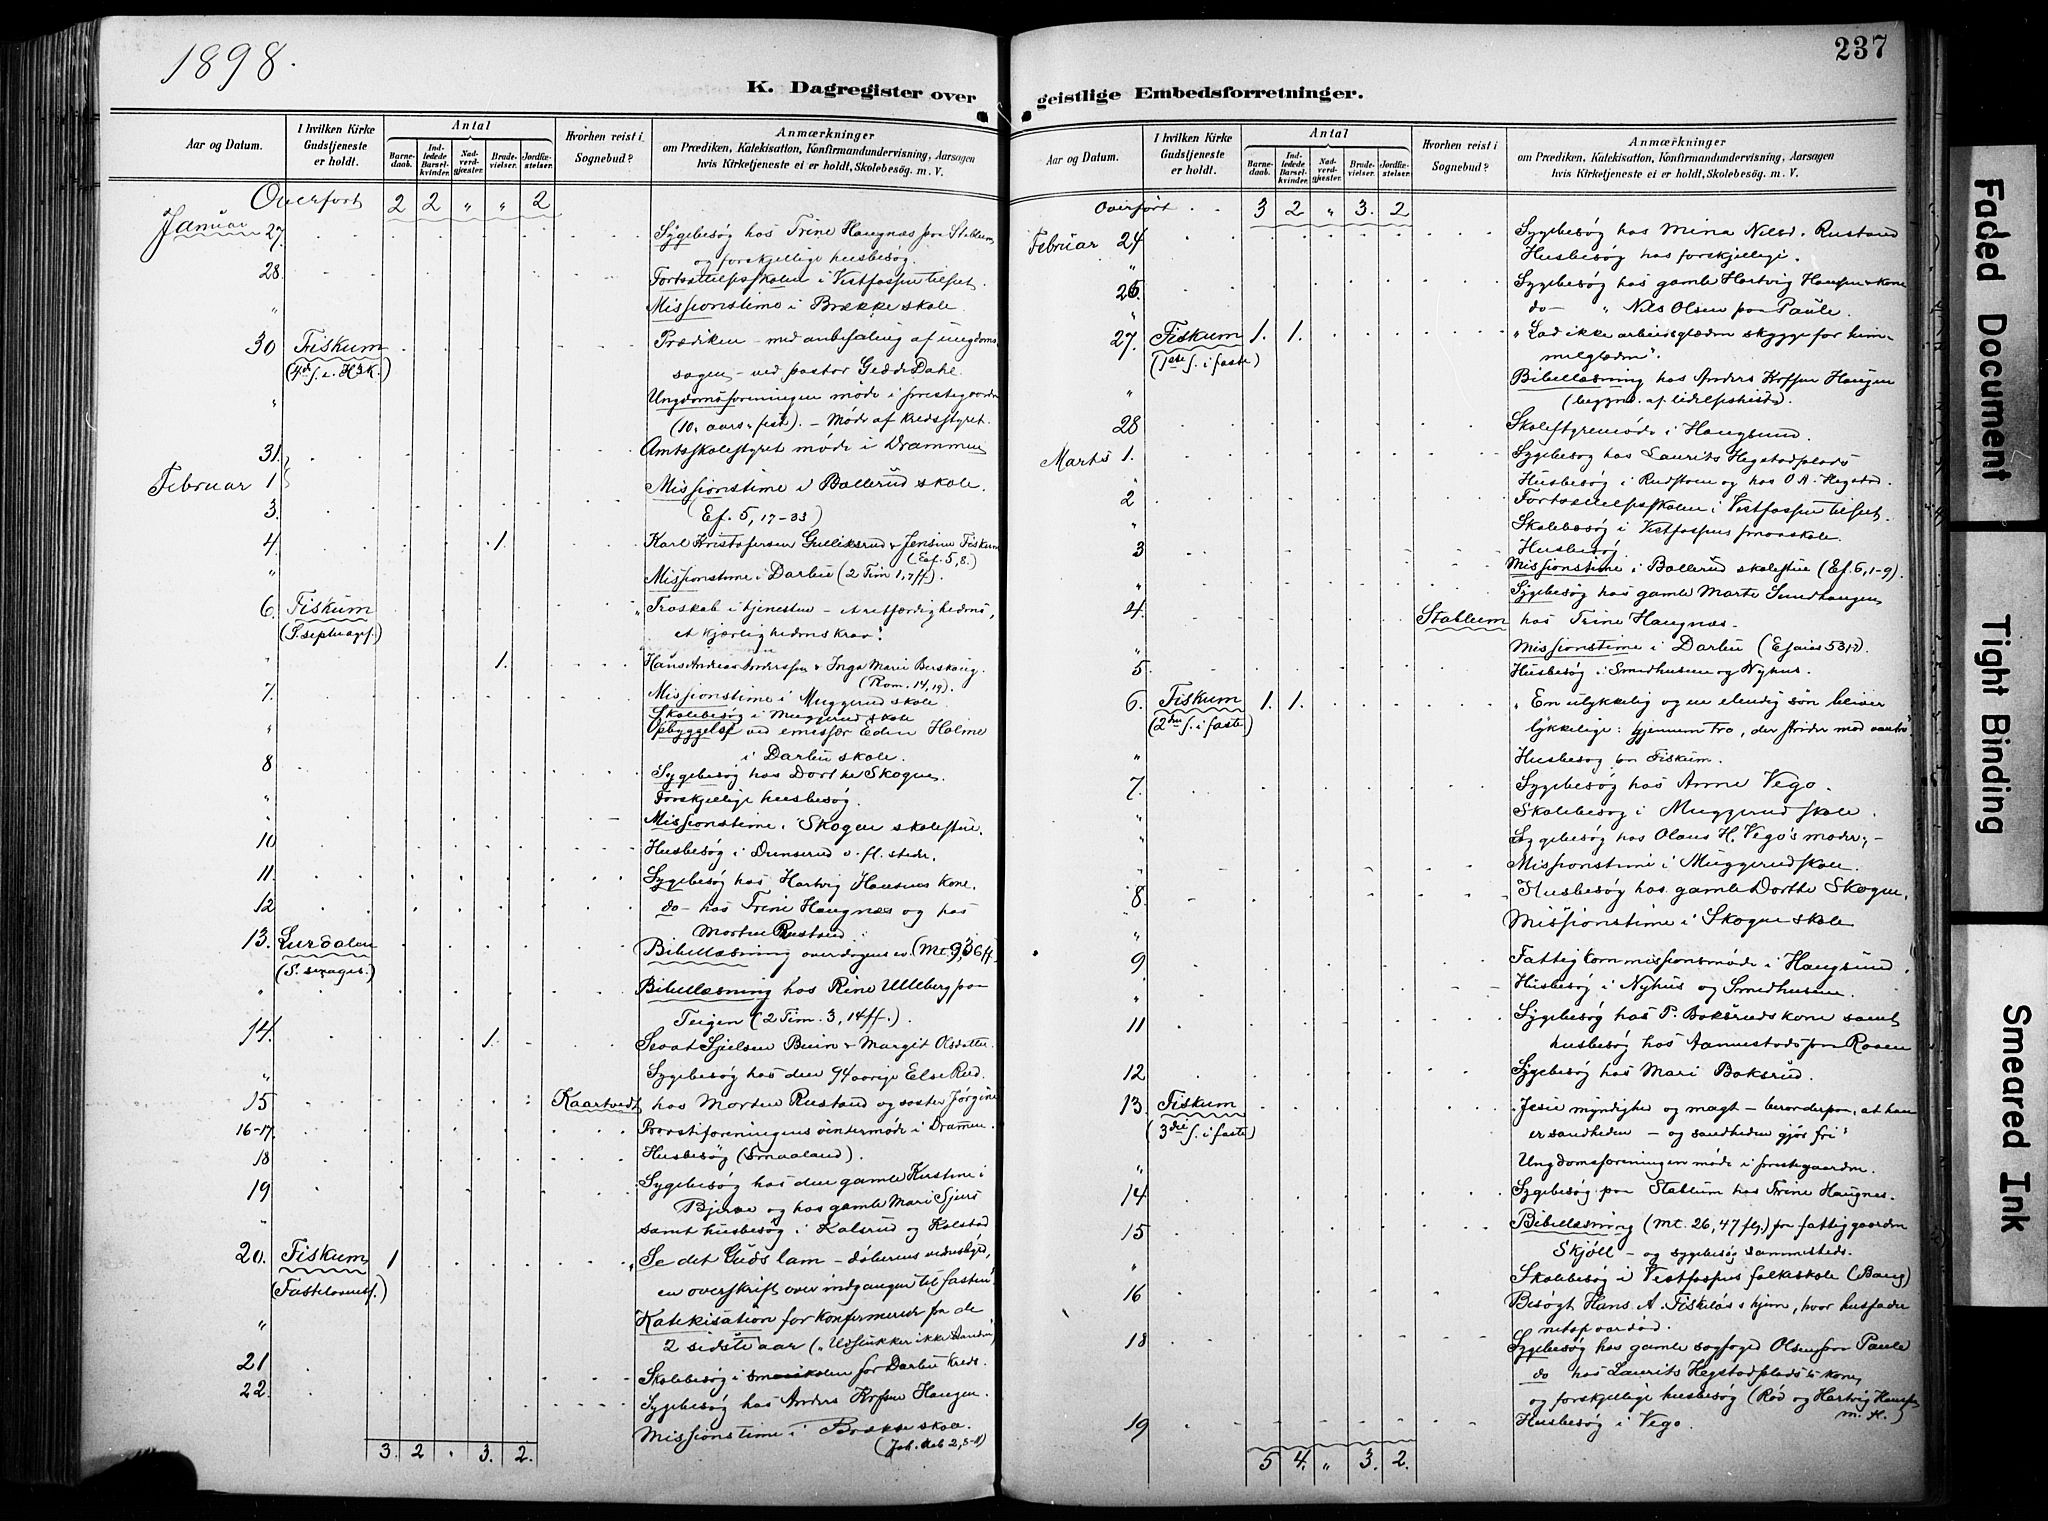 1898.
K. Dagregister over
Aar og Datum.
I hvilken Kirke Gudstjeneste er holdt.
Antal
Barnedaab.
Indledede Barselkvinder.
Nadverdgjæster.
Brudevielser.
Jordfæstelser.
Hvorhen reist i Sognebud?
Anmærkninger
om Prædiken, Katekisation, Konfirmandundervisning, Aarsagen
hvis Kirketjeneste ei er holdt, Skolebesøg. m. V.
Overført 2 2 " " 2
Januar 27. Sygebesøg hos Trine Haugnæs paa Stablum
og forskjellige husbesøg.
28. Fortsættelsesskolen i Vestfossen tilset.
" Missionstime i Brække skole.
30 Fiskum Prædiken – med anbefaling af ungdoms-
sagen – ved pastor Gedde Dahl.
" Ungdomsforeningen møde i prestegaarden
(10. aars-fest). – Møde af kredsstyret.
31. Amtsskolestyret møde i Drammen
Februar 1
3. Missionstime i Ballerud skole.
(Ef. 5, 17-33)
4. 1. Karl Kristofersen Gulliksrud & Jensine Fiskum
(Ef. 5, 8.)
" Missionstime i Darbu (2 Tim 1, 7 ff).
6. Fiskum (S. septuages.) "Troskab i tjenesten – et retfærdighedens,
et kjærlighedens krav".
" 1. Hans Andreas Anderssen & Inga Marie Berskaug.
(Rom. 14, 19).
7. Missionstime i Muggerud skole
Skolebesøg i Muggerud skole
" Opbyggelse ved emissær Eden Holme
i Darbu skole.
8 Sygebesøg hos Dorthe Skogen.
" Forskjellige husbesøg.
" Missionstime i Skogen skolestue.
10 Husbesøg i Dunserud o. fl. steder.
11. Sygebesøg hos Hartvig Hansens kone.
12 do – hos Trine Haugnæs og hos
Morten Rustand.
13. (S. sexages.) Bibellæsning over dagens ev.
" Bibellæsning hos Rine Ulleberg paa
Teigen (2 Tim. 3, 14 ff.).
14. 1. & Margit Olsdatter.
" Sygebesøg hos den 94 aarige Else Rud.
15 Kaartvedt hos Morten Rustand og søster Jørgine
16-17. vintermøde i Drammen.
18 Husbesøg (Smaaland).
19 Sygebesøg hos den gamle Kirstine i
Bjerve og hos gamle Mari
" samt husbesøg i Kalsrud og Kolstad
20. Fiskum (Fastelavnss.) 1 "Se det Guds lam – døberens vidnesbyrd,
en overskrift over indgangen til fasten"
" Katekisation for konfirmerede fra de
2 sidste aar ("Udslukker ikke Aanden")
21 Skolebesøg i smaaskolen for Darbu kreds.
22. Sygebesøg hos Anders Krfsen Haugen.
Missionstime i Brække skole.
3. 2 " 3. 2.
237
geistlige Embedsforretninger.
Aar og Datum.
I hvilken Kirke Gudstjeneste er holdt.
Antal
Barnedaab.
Indledede Barselkvinder.
Nadverdgjæster.
Brudevielser.
Jordfæstelser.
Hvorhen reist i Sognebud?
Anmærkninger
om Prædiken, Katekisation, Konfirmandundervisning, Aarsagen
hvis Kirketjeneste ei er holdt, Skolebesøg. m. V.
Overført 3 2 " 3. 2
Februar 24 Sygebesøg hos Mina Nilsd. Rustand
" Husbesøg hos forskjellige.
26. Sygebesøg hos gamle Hartvig Hansen & kone
do – " Nils Olsen paa Paule.
27. Fiskum (1ste s. i faste) 1. 1. "Lad ikke arbeidsglæden skygge for him-
melglæden".
" Bibellæsning hos Anders Krfsen Haugen
(begynd. af lidelseshist.).
28 Skolestyremøde i Haugsund.
Marts 1. Sygebesøg hos Laurits Hegstadplads
" Husbesøg i Rudstøen og hos O. A. Hegstad.
2 Fortsættelsesskolen i Vestfossen tilset.
" Skolebesøg i Vestfossens smaaskole.
3 Husbesøg.
Missionstime i Ballerud skolestue (Ef. 6, 1-9).
" Sygebesøg hos gamle Marte Smedhaugen
4 Stablum hos Trine Haugnæs.
" Missionstime i Darbu
5 Husbesøg i Smedhusene og Nyhus.
6. Fiskum (2den s. i faste) 1. 1. "En ulykkelig og en elendig søn bliver
lykkelige: gjennem tro, der strider mod vantro".
" Husbesøg paa Fiskum.
7. Sygebesøg hos Anne Vego.
" Skolebesøg i Muggerud skole.
" Sygebesøg hos Olaus H. Vego's moder; –
" Missionstime i Muggerud skole.
8. Husbesøg hos gamle Dorthe Skogen.
" Missionstime i Skogen skole
9 Fattigkommissionsmøde i Haugsund.
" Husbesøg i Nyhus og Smedhusene.
11 Sygebesøg hos P. Boksruds kone samt
husbesøg hos Aannestads paa Roaen
12 Sygebesøg hos Mari Boksrud.
13. Fiskum (3die s. i faste) "Jesu myndighed og magt – beror derpaa, at han
er sandheden – og sandheden gjør fri"
" Ungdomsforeningen møde i prestegaarden.
14 Sygebesøg paa Stablum hos Trine Haugnæs.
15 Bibellæsning (Mt. 26, 47 flg.) paa fattiggaarden
Skjøll – og sygebesøg sammesteds.
" Skolebesøg i Vestfossens folkeskole (Bang)
16 Besøgt Hans A. Fiskeløs's hjem, hvor husfader
netop var død.
18 Sygebesøg hos gamle sogfoged Olsen paa Paule
do hos Laurits Hegstadplads's kone
og forskjellige husbesøg (Rød og Hartvig Hansen
m. fl.)
19 Husbesøg i Vego.
5 4. " 3. 2.
Faded Document
Tight Binding
Smeared Ink